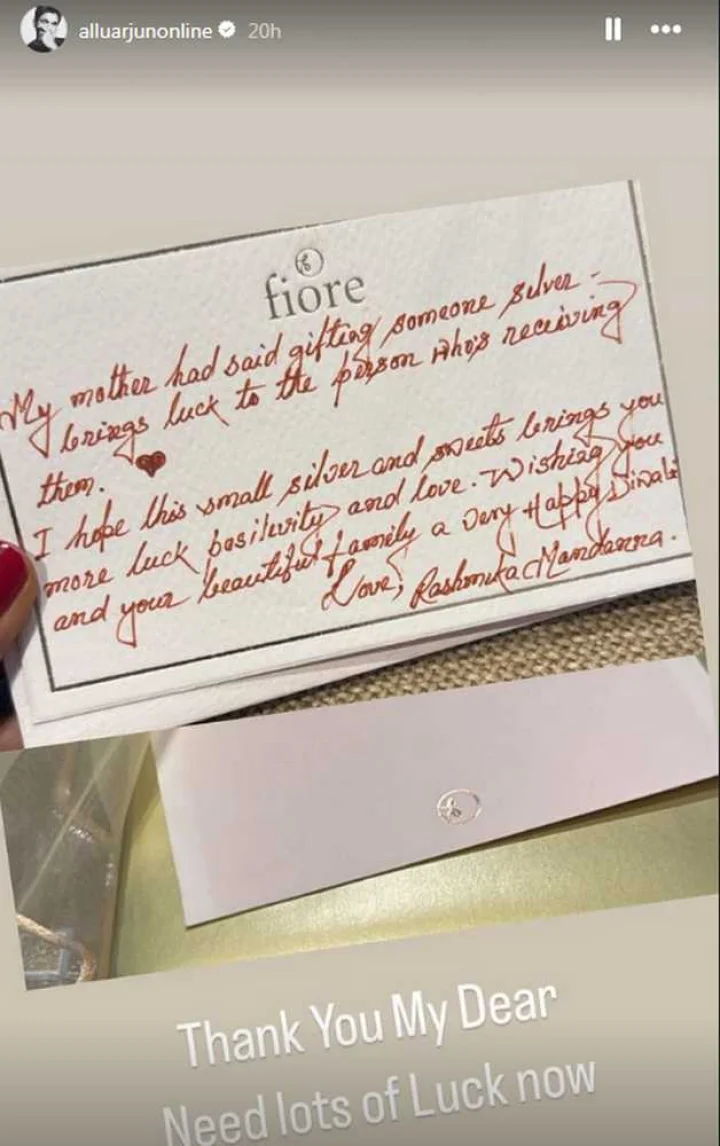 alluarjunonline 20h
fiore
My mother had said gifting someone silver -
brings luck to the person who's receiving
them.
I hope this small silver and sweets brings you
more luck positivity and love. Wishing you
and your beautiful family a very Happy Diwali
Love, Rashmika Mandanna.
Thank You My Dear
Need lots of Luck now